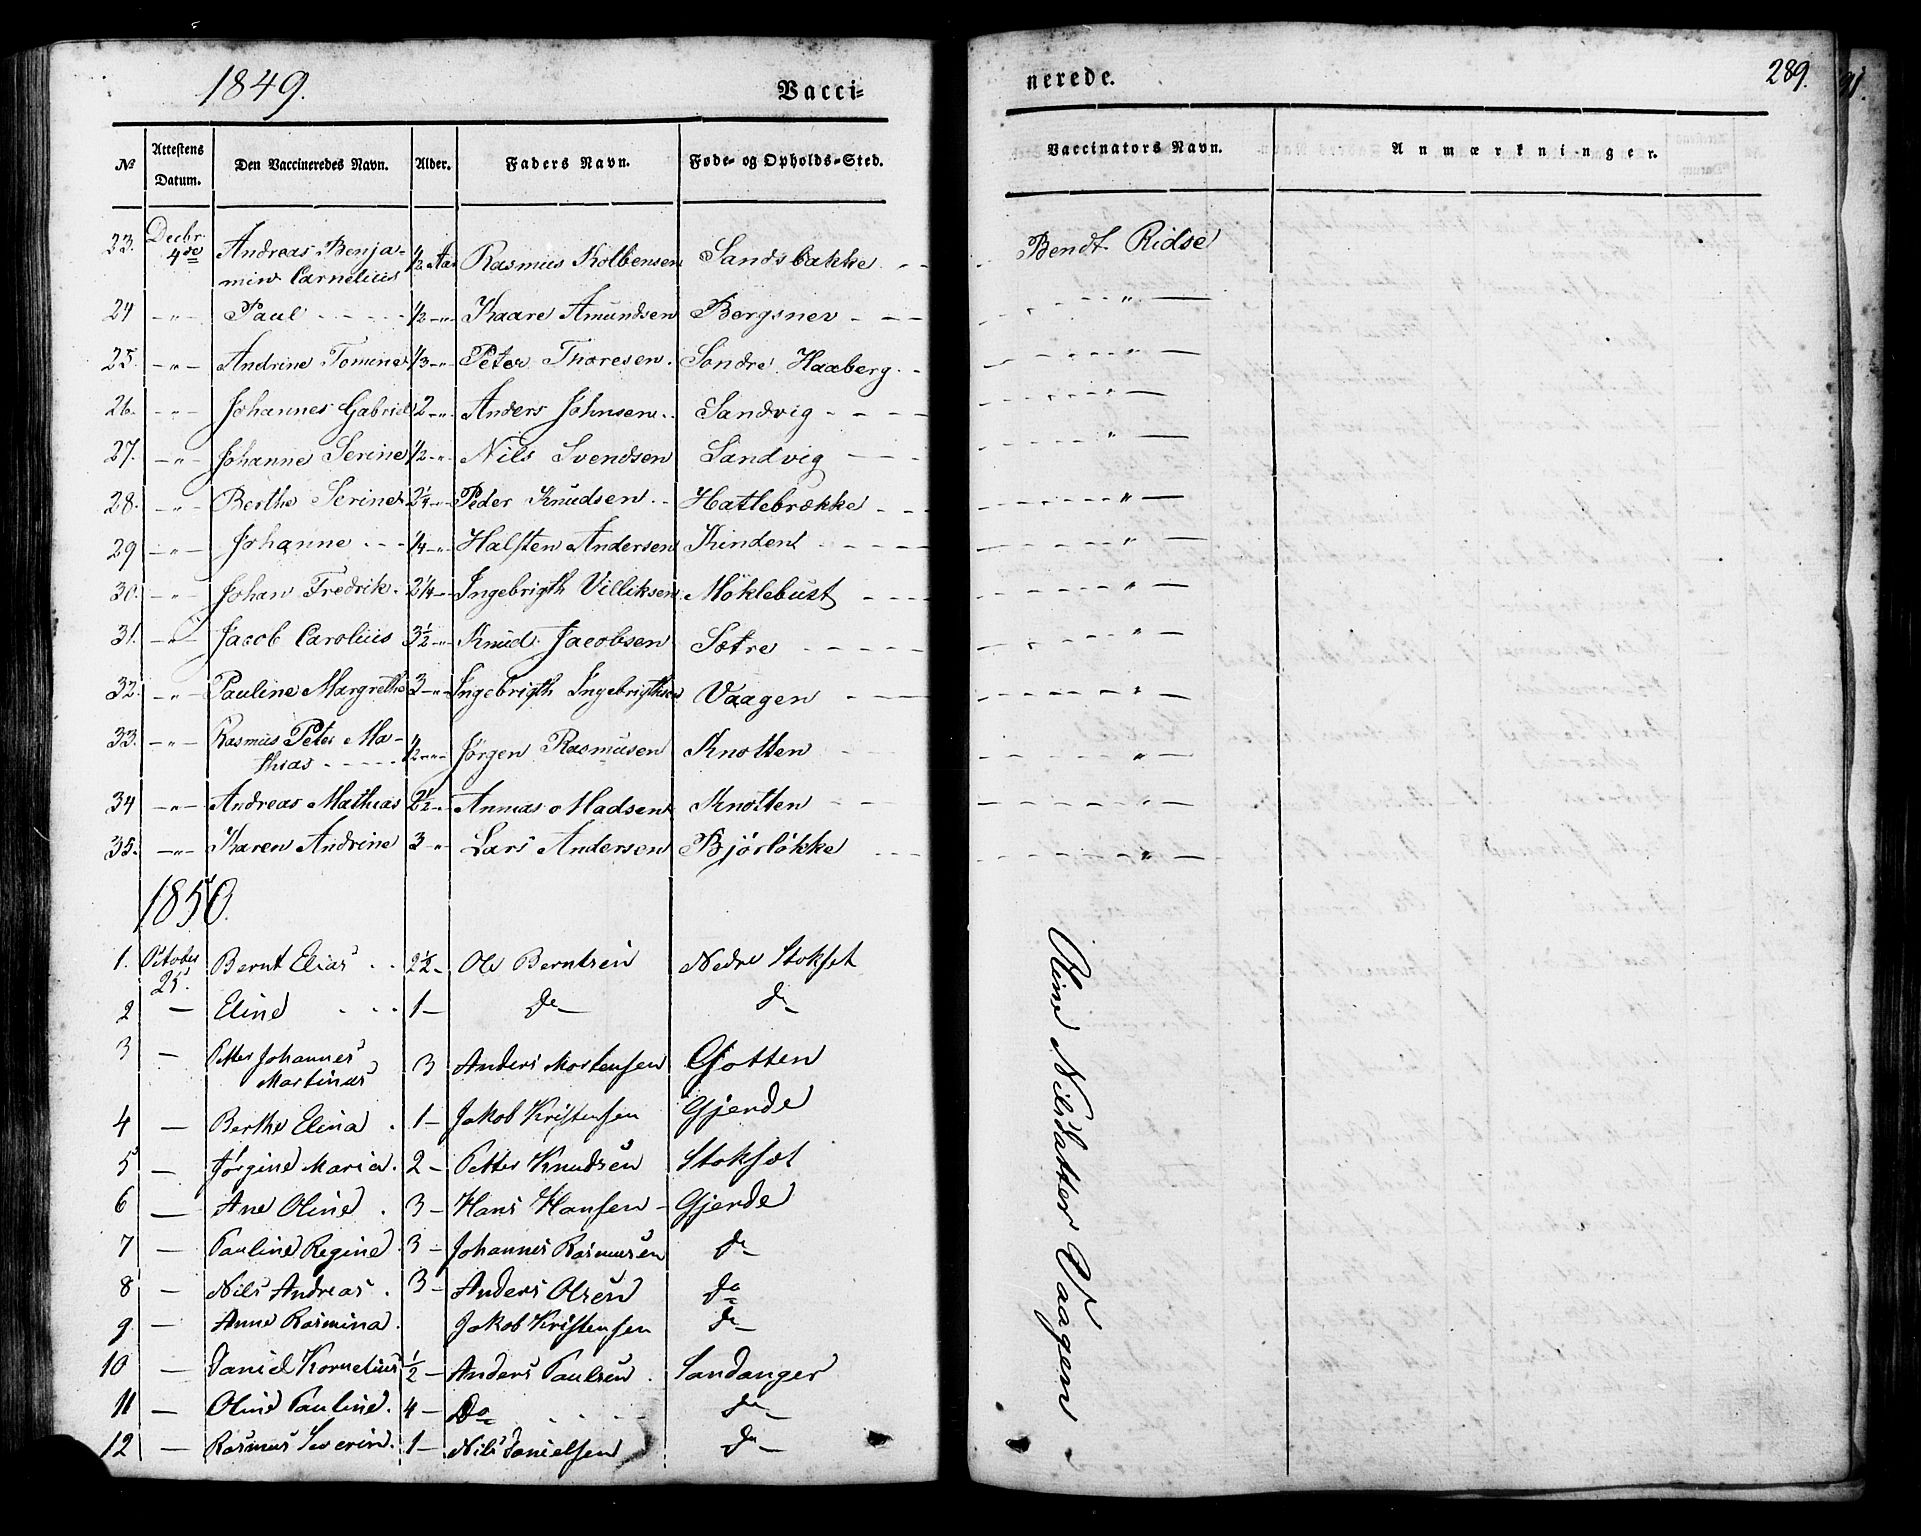 1849. Vacci-
nerede. 289.
91.
No Attestens Datum. Den Vaccineredes Navn. Alder. Faders Navn. Føde- og Opholds-Sted. Vaccinators Navn. Anmærkninger.
23. Decbr. 4de Andreas Benja-
min Carnelius 1/2 Aar Rasmus Kolbensen Sandsbakke - - - Bendt Ridse
24 - " - Paul - - - - 1/2 - " - Kaare Amundsen Bergsnev - - - - - - " -
25. - " - Andrine Tomine 1/3 - " - Peter Thoresen. Søndre Haaberg. - - - - " -
26. - " - Johannes Gabriel 2 - " - Anders Johnsen. . Sandvig - - - - - - " -
27. - " - Johanne Serine 1/2 - " - Nils Svendsen Sandvig - - - - - - " -
28. - " - Berthe Serine 2 1/4 - " - Peder Knudsen. - Hatlebrække - - - - - - " -
29 - " - Johanne - - - 1/4 - " - Halsten Andersen Kinden - - - - - - " -
30. - " - Johan Fredrik. 2 1/4 - " - Ingebrigth Villiksen Møklebust - - - - - - " -
31. - " - Jacob Carolius 3 1/2 - " - Knud Jacobsen Sætre - - - - - - - " -
32. - " - Pauline Margrethe 3 - " - Ingebrigth Ingebrigthsen Vaagen - - - - - - " -
33. - " - Rasmus Peter Ma-
thias - - - - 1/2 - " - Jørgen Rasmusen Knotten - - - - - - " -
34 - " - Andreas Mathias 2 1/2 - " - Annias Madsen Knotten - - - - - - " -
35. - " - Karen Andrine 3 - " - Lars Andersen Bjørløkke - - - - - - " -
1850.
1. October 25. Bernt Elias . . 2 1/2 - Ole Berntsen Nedre Stokset
2 - Eline . . . 1 - Do - Do -
3 - Petter Johannes
Martinus 3 Anders Mortensen Gjotten
4 - Berthe Elina . 1 - Jakob Kristensen Gjerde
5 - Jørgine Maria . 2 - Petter Knudsen Stokset
6 - Ane Oline . 3 - Hans Hansen - Gjerde
7 - Pauline Regine . 3 - Johannes Rasmussen Do -
8 - Nils Andreas . 3 - Anders Olsen Do
9. - Anne Rasmina . Jakob Kristensen Do -
10 - Daniel Kornelius 1/2 - Anders Paulsen . Sandanger
11 - Oline Pauline . 4 - Do . . . Do -
12 - Rasmus Severin . 1 - Nils Danielsen Do -
Oline Nilsdatter Vaagen